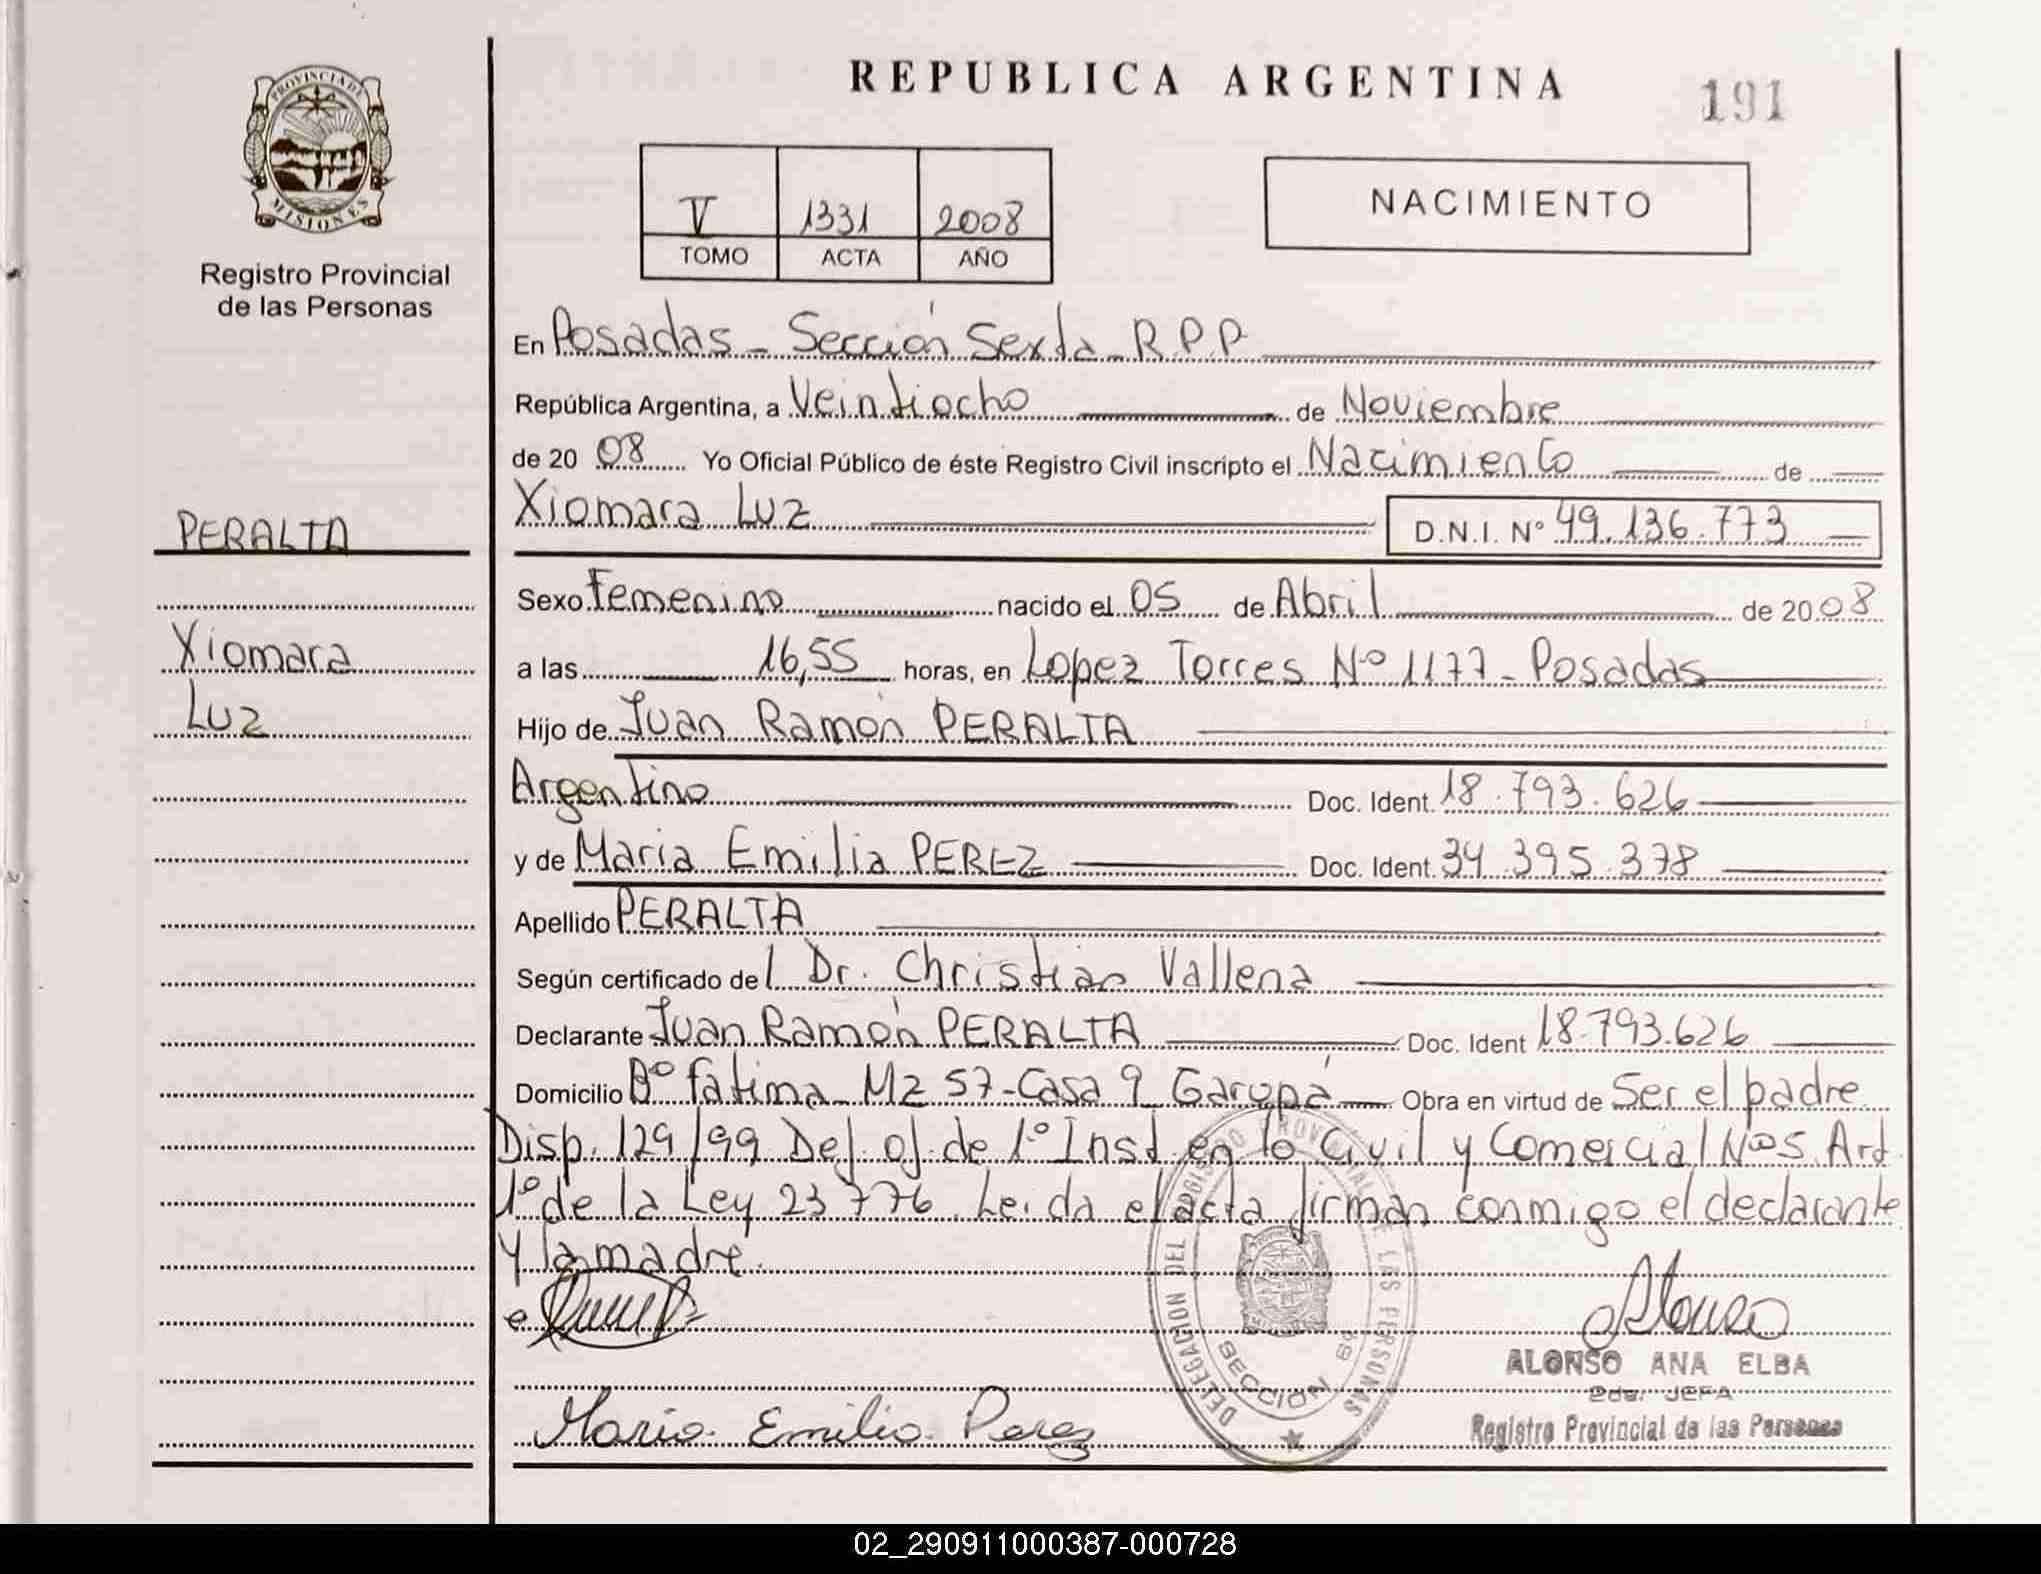 REPUBLICA ARGENTINA
191
PROVINCIA DE
MISIONES
Registro Provincial
de las Personas
V 1331 2008
TOMO ACTA AÑO
NACIMIENTO
En Posadas - Sección Sexta R.P.P
República Argentina, a Veintiocho de Noviembre
de 2008 Yo Oficial Público de éste Registro Civil inscripto el Nacimiento de
Xiomara Luz D.N.I. Nº 49.136.773
PERALTA
Sexo Femenino nacido el 05 de Abril de 2008
Xiomara
a las 16,55 horas, en Lopez Torres Nº 1177 - Posadas
Luz
Hijo de Juan Ramón PERALTA
Argentino Doc. Ident. 18.793.626
y de Maria Emilia PEREZ Doc. Ident. 34.395.378
Apellido PERALTA
Según certificado del Dr. Christian Vallena
Declarante Juan Ramón PERALTA Doc. Ident 18.793.626
Domicilio Bº Fatima Mz 57 - Casa 9 Garupá Obra en virtud de Ser el padre
Disp. 129/99 Def. of. de 1º Inst en lo Civil y Comercial Nº5 Art
1º de la Ley 23776. Leida el acta firman conmigo el declarante
y la madre
DELEGACION DEL REGISTRO PROVINCIAL DE LAS PERSONAS
SECCION 6ª
Alonso
ALONSO ANA ELBA
2da. JEFA
Registro Provincial de las Personas
Maria Emilia Perez
02_290911000387-000728